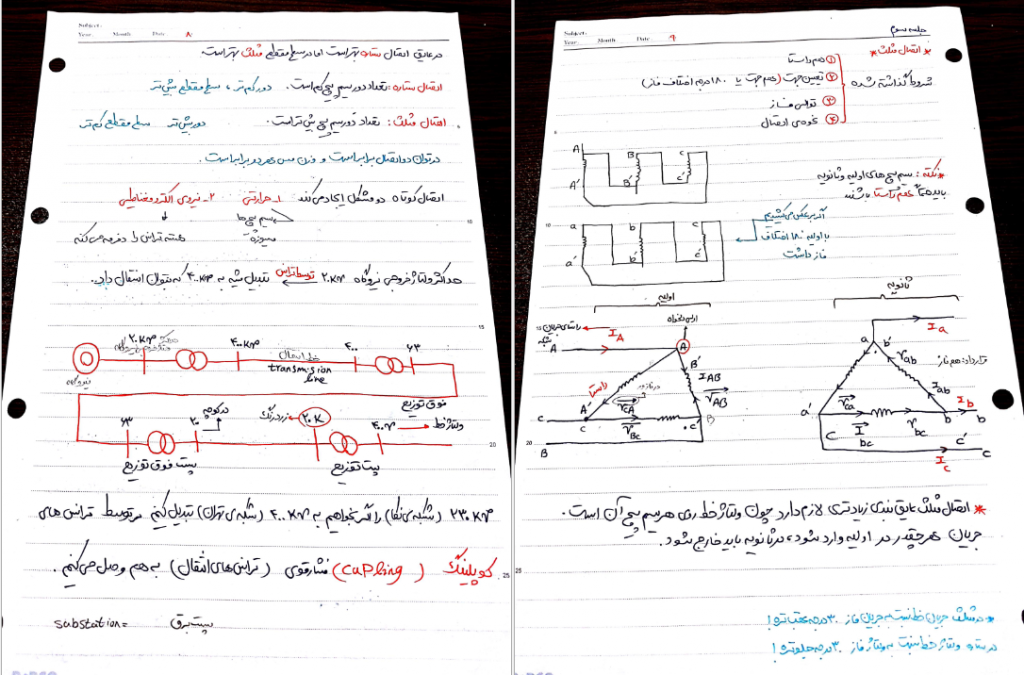 Subject:
Year. Month Date ۸
در عایق اتصال ستاره بهتر است اما در سطح مقطع مثلث بهتر است.
اتصال ستاره: تعداد دور سیم پیچ کم است. دور کم تر ، سطح مقطع بیش تر
اتصال مثلث: تعداد دور سیم پیچ بیش تر است. دور بیش تر سطح مقطع کم تر
در توان دو اتصال برابر است و وزن مس هر دو برابر است.
اتصال کوتاه دو مشکل ایجاد می کند ۱- حرارتی ۲- نیروی الکترومغناطیسی
سیم پیچ ها
میسوزه
هسته ترانس را دفرمه می کنه
حداکثر ولتاژ خروجی نیروگاه ۲۰kv توسط ترانس تبدیل شه به ۴۰۰kv که بتوان انتقال داد.
۲۰kv
نیروگاه
۴۰۰kv
خط انتقال
transmission
line
۴۰۰
۶۳
فوق توزیع
۶۳
۲۰
در کوچه
۲۰k
۴۰۰v
ولتاژ خط
پست فوق توزیع
پست توزیع
۲۳۰kv (شبکه ی نکا) را اگر بخواهیم به ۴۰۰kv (شبکه ی تهران) تبدیل کنیم توسط ترانس های
کوپلینگ (cupling) فشار قوی (ترانس های انتقال) به هم وصل می کنیم.
substation= پست برق
Subject:
Year. Month Date ۹
جلسه سوم
* اتصال مثلث *
شروط گذاشته شده
① هم راستا
② تعیین جهت (هم جهت یا ۱۸۰ درجه اختلاف فاز)
③ توالی فاز
④ نحوه ی اتصال
A B C
A' B' C'
* نکته: سیم پیچ های اولیه و ثانویه
باید حتما هم راستا باشند
a b c
a' b' c'
اگر برعکس می کشیدیم
با اولیه ۱۸۰ اختلاف
فاز داشت
اولیه
ثانویه
دلخواه
راستای جریان
شبکه
A
I_A
A
B'
I_AB
V_AB
راستا
A'
V_CA
C
c
V_Bc
c'
B
B
a b'
I_a
V_ab
قرارداد: هم فاز
I_ab
V_ca
a'
b
I_b
b
C
I_bc
V_bc
c'
I_c
c
* اتصال مثلث عایق بندی زیادتری لازم دارد چون ولتاژ خط روی هر سیم پیچ آن است.
جریان هر چقدر در اولیه وارد شود، در ثانویه باید خارج شود.
* در مثلث جریان خط نسبت به جریان فاز ۳۰ درجه عقب تره!
در ستاره ولتاژ خط نسبت به ولتاژ فاز ۳۰ درجه جلوتره!